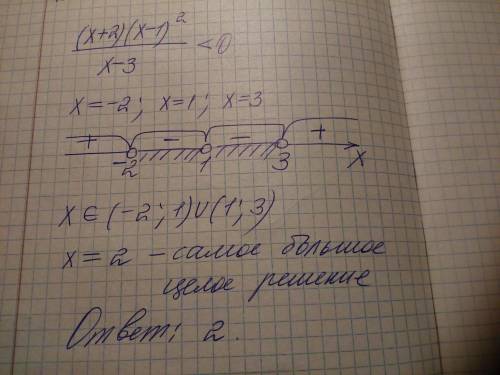 (x+2)(x-1)²
x-3 <0
x=-2; x=1; x=3
+ - - +
-2 1 3 x
x∈(-2; 1)∪(1; 3)
x=2 - самое большое
целое решение
Ответ: 2.